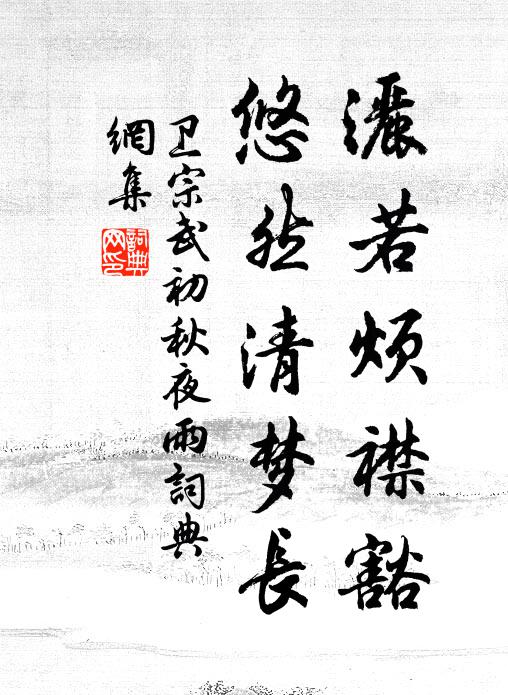 灑若煩襟豁
悠然清梦長
卫宗武初秋夜雨詞典
網集
詞典
网印